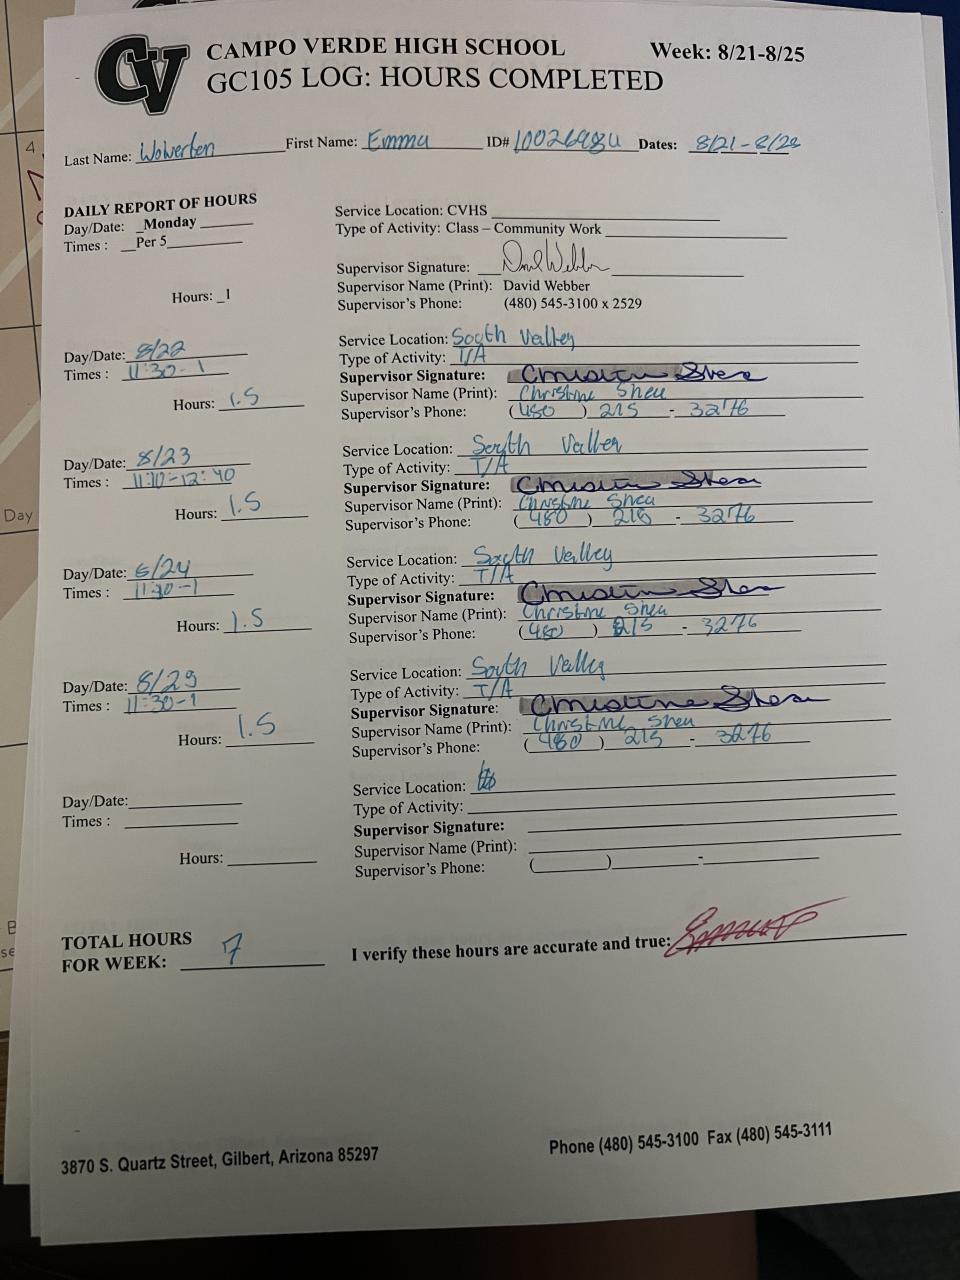 CV
CAMPO VERDE HIGH SCHOOL Week: 8/21-8/25
GC105 LOG: HOURS COMPLETED
Last Name: First Name: Emma ID# Dates: 8/21-
DAILY REPORT OF HOURS
Day/Date: _Monday
Times : Per 5
Hours: _1
Service Location: CVHS
Type of Activity: Class – Community Work
Supervisor Signature:
Supervisor Name (Print): David Webber
Supervisor's Phone: (480) 545-3100 x 2529
Day/Date: 8/22
Times : 11:30-1
Hours: 1.5
Service Location: South Valley
Type of Activity: T/A
Supervisor Signature: Christine Shea
Supervisor Name (Print): Christine Shea
Supervisor's Phone: (480) 215 - 3276
Day/Date: 8/23
Times : 11:10-12:40
Hours: 1.5
Service Location: South Valley
Type of Activity: T/A
Supervisor Signature: Christine Shea
Supervisor Name (Print): Christine Shea
Supervisor's Phone: (480) 215 - 3276
Day/Date: 8/24
Times : 11:30-1
Hours: 1.5
Service Location: South Valley
Type of Activity: T/A
Supervisor Signature: Christine Shea
Supervisor Name (Print): Christine Shea
Supervisor's Phone: (480) 215 - 3276
Day/Date:
Times : 11:30-1
Hours: 1.5
Service Location: South Valley
Type of Activity: T/A
Supervisor Signature: Christine Shea
Supervisor Name (Print): Christine Shea
Supervisor's Phone: (480) 215 - 3276
Day/Date:
Times :
Hours:
Service Location:
Type of Activity:
Supervisor Signature:
Supervisor Name (Print):
Supervisor's Phone: ( ) -
TOTAL HOURS
FOR WEEK: 7
I verify these hours are accurate and true:
3870 S. Quartz Street, Gilbert, Arizona 85297
Phone (480) 545-3100 Fax (480) 545-3111
Day